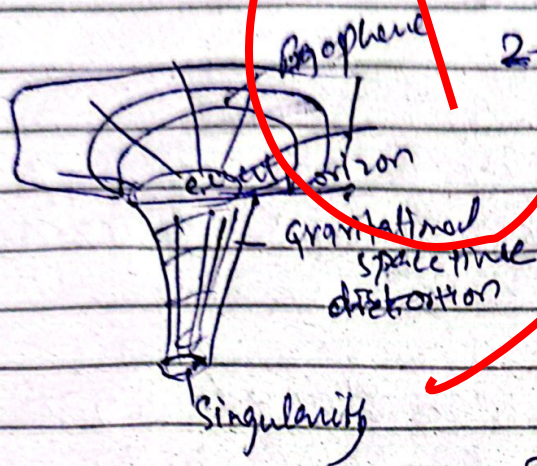 Ergophene
2-
event horizon
gravitational
spacetime
distortion
Singularity